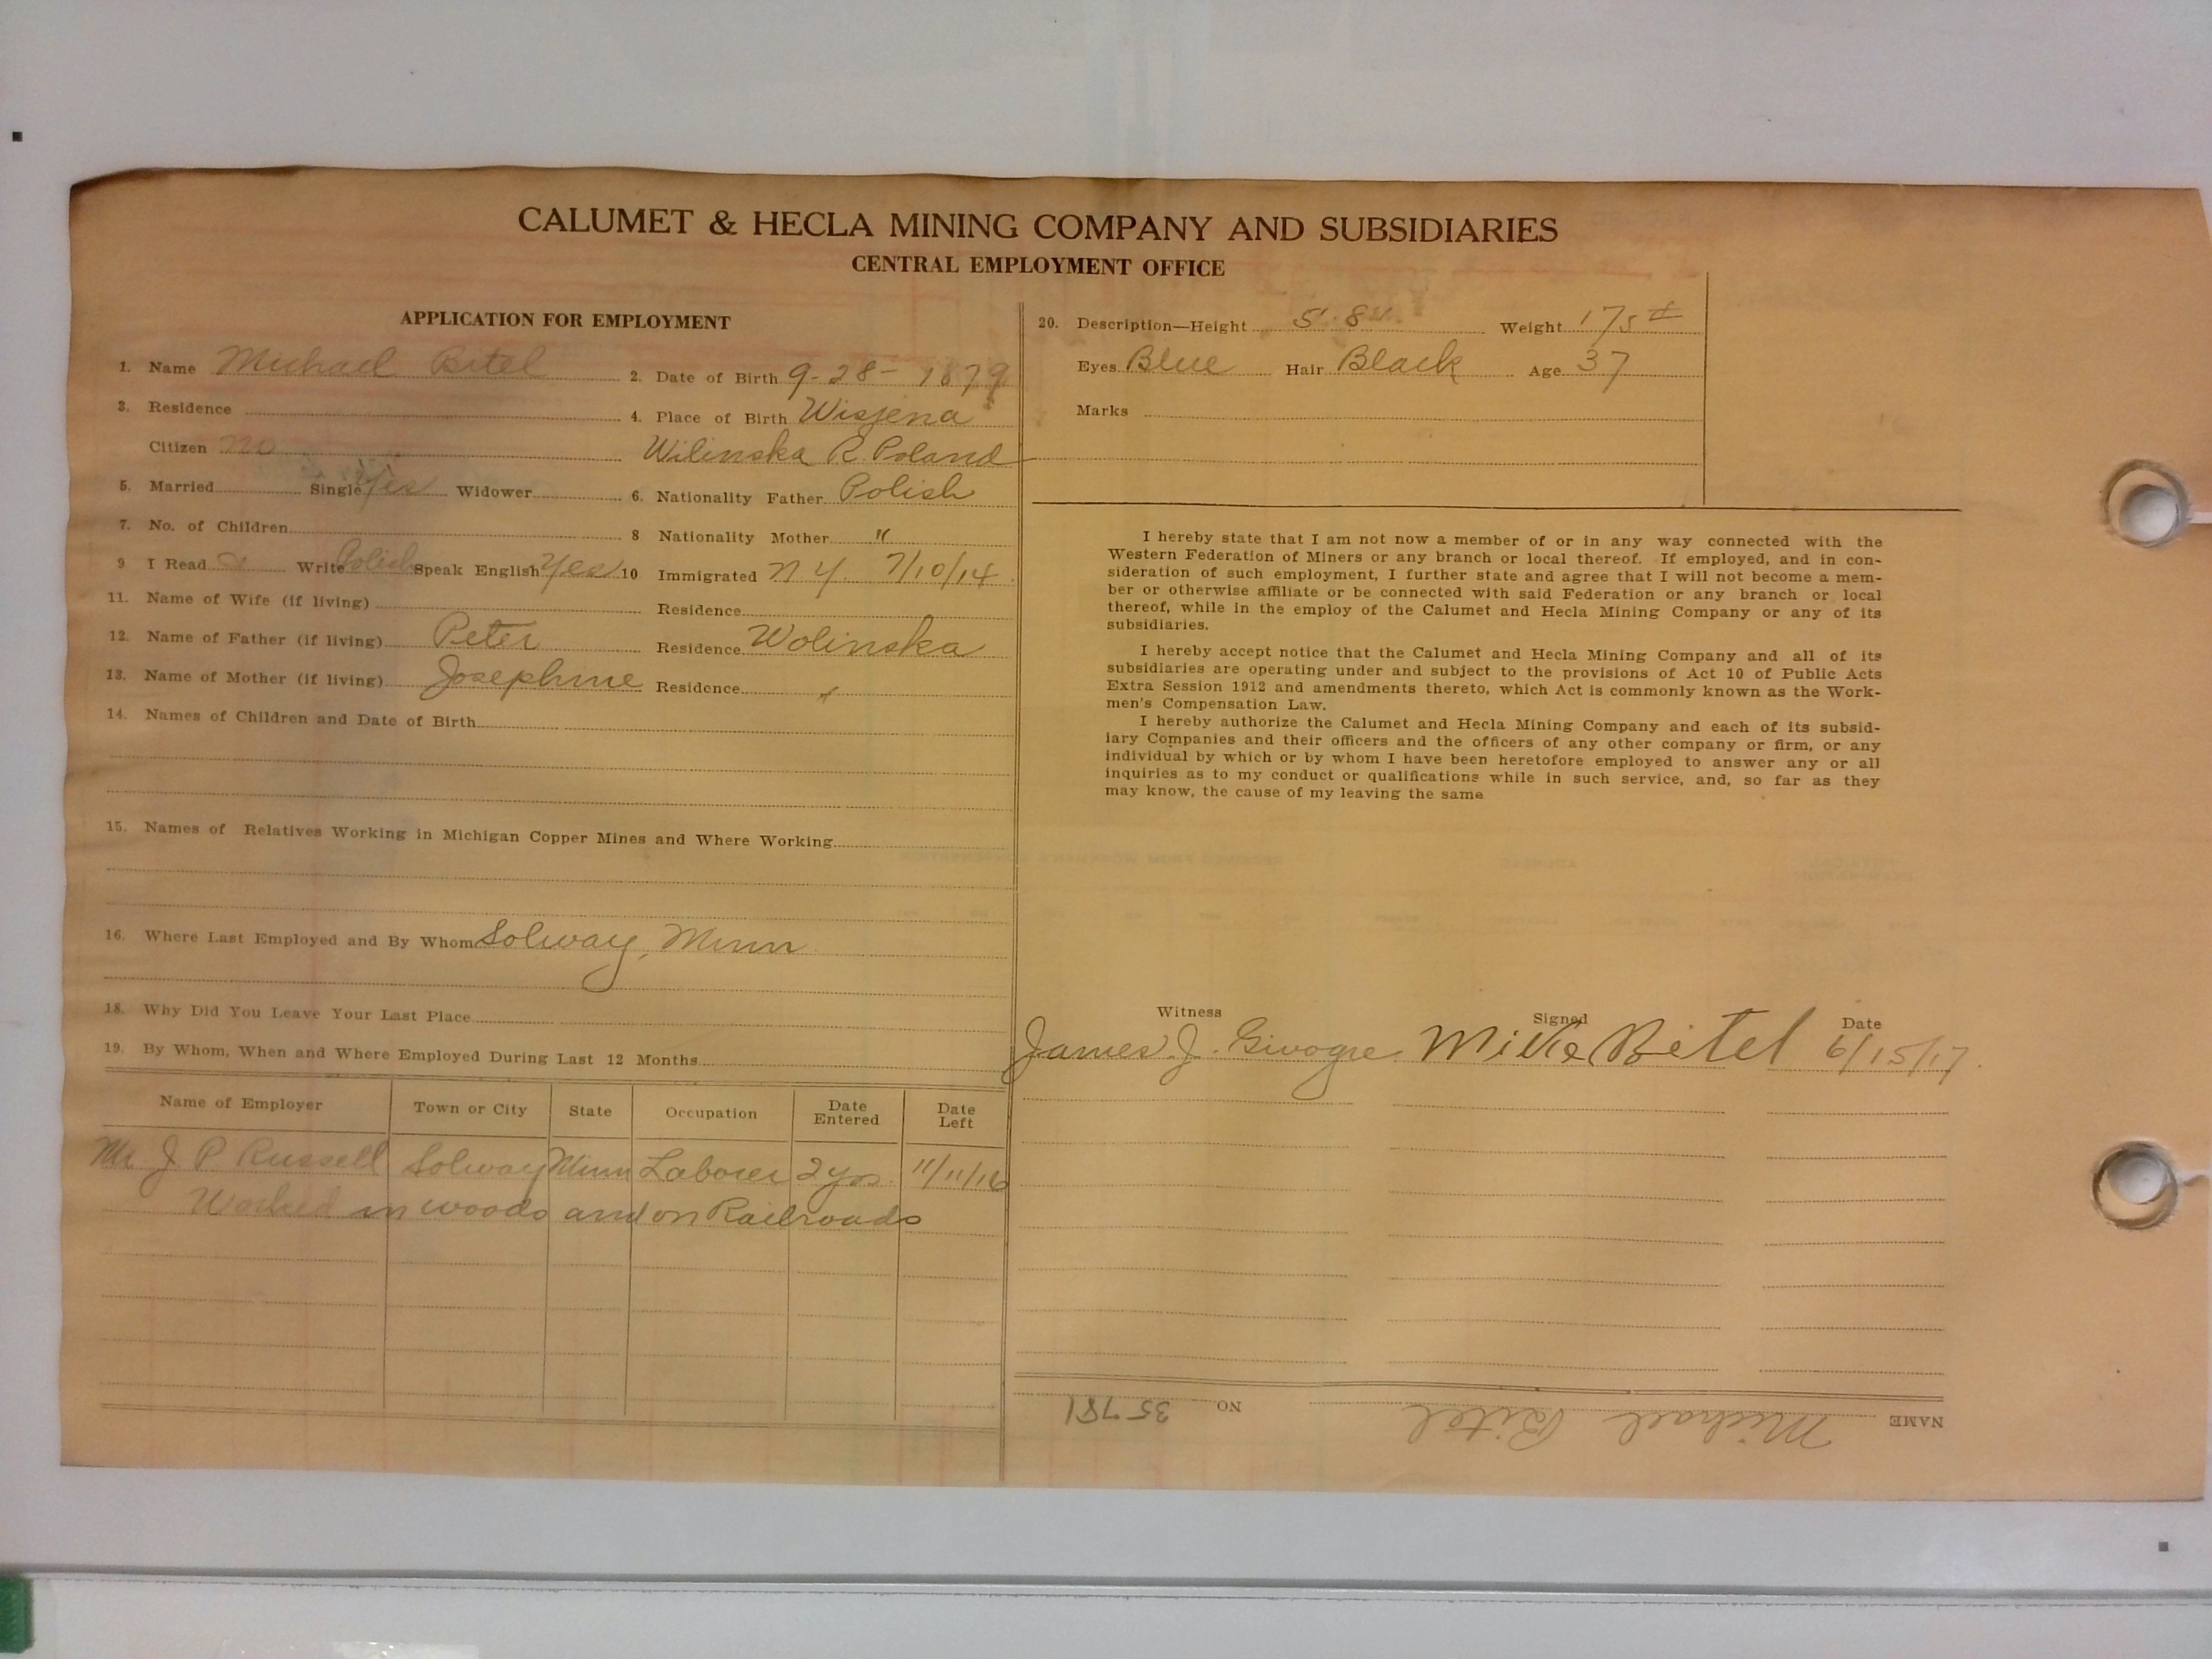 CALUMET & HECLA MINING COMPANY AND SUBSIDIARIES
CENTRAL EMPLOYMENT OFFICE
APPLICATION FOR EMPLOYMENT
1. Name Michael Bitel 2. Date of Birth 9-28-1879
3. Residence 4. Place of Birth Wisjena
Citizen no Wilinska R. Poland
5. Married Single Yes Widower 6. Nationality Father Polish
7. No. of Children 8 Nationality Mother "
9 I Read Write Polish Speak English Yes 10 Immigrated N Y. 7/10/14
11. Name of Wife (if living) Residence
12. Name of Father (if living) Peter Residence Wolinska
13. Name of Mother (if living) Josephine Residence
14. Names of Children and Date of Birth
15. Names of Relatives Working in Michigan Copper Mines and Where Working
16. Where Last Employed and By Whom Solway, Minn
18. Why Did You Leave Your Last Place
19. By Whom, When and Where Employed During Last 12 Months
Name of Employer Town or City State Occupation Date Entered Date Left
Mr J P Russell Solway Minn Laborer 2 yrs. 11/11/16
Worked in woods and on Railroads
20. Description—Height 5' 8" Weight 175 #
Eyes Blue Hair Black Age 37
Marks
I hereby state that I am not now a member of or in any way connected with the
Western Federation of Miners or any branch or local thereof. If employed, and in con-
sideration of such employment, I further state and agree that I will not become a mem-
ber or otherwise affiliate or be connected with said Federation or any branch or local
thereof, while in the employ of the Calumet and Hecla Mining Company or any of its
subsidiaries.
I hereby accept notice that the Calumet and Hecla Mining Company and all of its
subsidiaries are operating under and subject to the provisions of Act 10 of Public Acts
Extra Session 1912 and amendments thereto, which Act is commonly known as the Work-
men's Compensation Law.
I hereby authorize the Calumet and Hecla Mining Company and each of its subsid-
iary Companies and their officers and the officers of any other company or firm, or any
individual by which or by whom I have been heretofore employed to answer any or all
inquiries as to my conduct or qualifications while in such service, and, so far as they
may know, the cause of my leaving the same
Witness Signed Date
James J. Givogre Mike Bitel 6/15/17
NAME Michael Bitel NO 35781